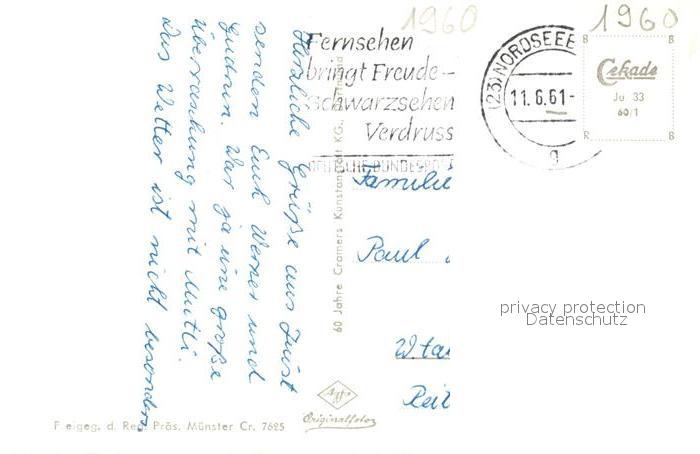 1960
1960
Fernsehen
bringt Freude-
Schwarzsehen
Verdruss
DEUTSCHE BUNDESPOST
(23) NORDSEEB
11.6.61-
g
B B
Cekade
Ju 33
60/1
R R
Herzliche Grüße aus Juist
senden Euch Werner und
Gudrun. War ja eine große
Überraschung mit Mutti.
Das Wetter ist nicht besonders
60 Jahre Cramers Kunstanstalt KG., Dortmund
Familie
Paul
privacy protection
Datenschutz
Agfa
Originalfoto
Freigeg. d. Reg. Präs. Münster Cr. 7625